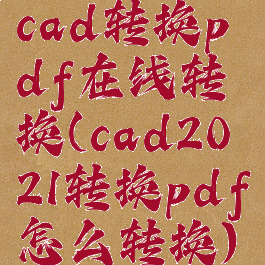 cad转换p
df在线转
换(cad20
21转换pdf
怎么转换)